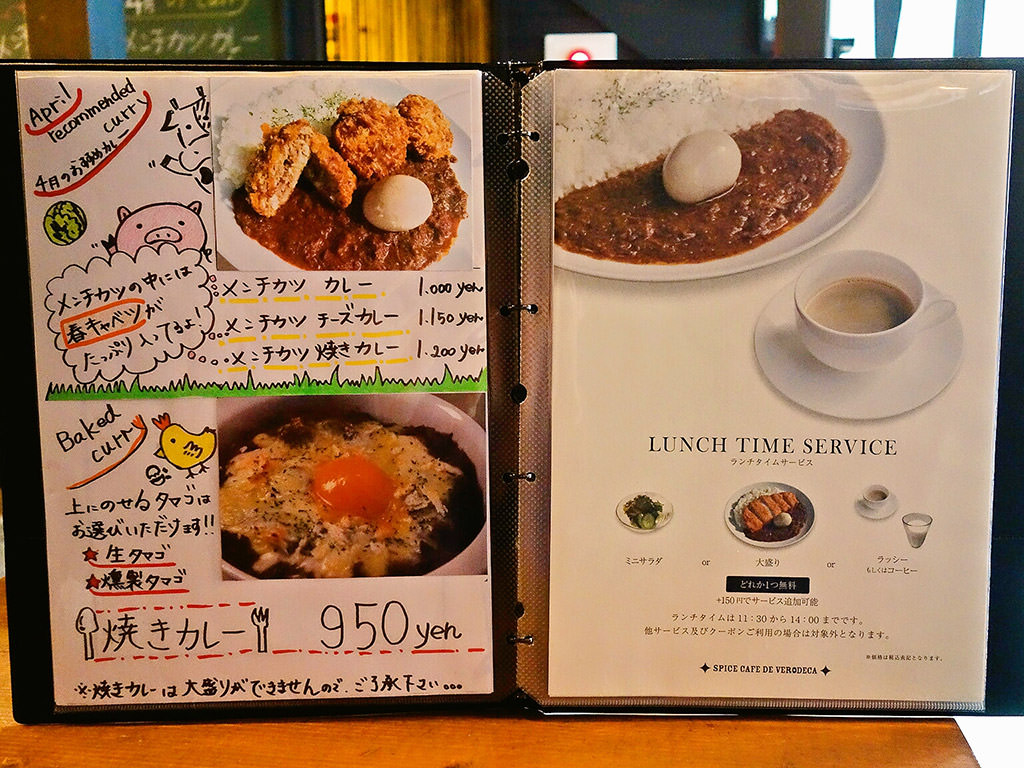 メンチカツカレー
April
recommended
curry
4月のお薦めカレー
メンチカツの中には
春キャベツが
たっぷり入ってるよ!
メンチカツ カレー 1.000 yen
メンチカツ チーズカレー 1.150 yen
メンチカツ 焼きカレー 1.200 yen
Baked
curry
上にのせるタマゴは
お選びいただけます!!
★生タマゴ
★燻製タマゴ
焼きカレー 950 yen
※焼きカレーは大盛りができませんので、ご了承下さい...
LUNCH TIME SERVICE
ランチタイムサービス
ミニサラダ or 大盛り or ラッシー
もしくはコーヒー
どれか1つ無料
+150円でサービス追加可能
ランチタイムは 11:30 から 14:00 までです。
他サービス及びクーポンご利用の場合は対象外となります。
※価格は税込表記となります。
SPICE CAFE DE VERODECA